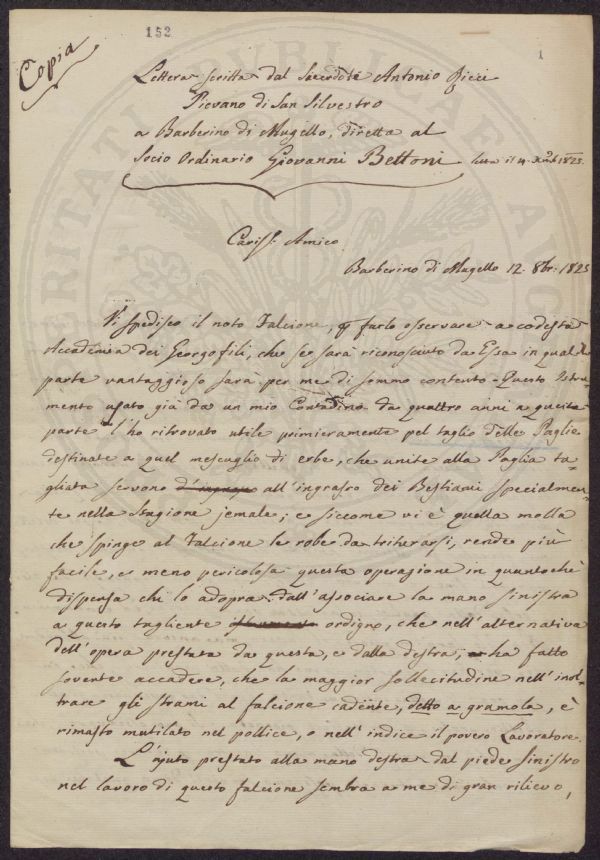 152
1
Copia
Lettera scritta dal Sacerdote Antonio Ricci
Pievano di San Silvestro
a Barberino di Mugello, diretta al
Socio Ordinario Giovanni Bettoni letta il 4. Xmb 1825.
Cariss: Amico
Barberino di Mugello 12. 8br: 1825
Vi spedisco il noto Falcione, p farlo osservare a codesta
Accademia dei Georgofili, che se sarà riconosciuto da Essa in qualche
parte vantaggioso sarà per me di sommo contento. Questo Istru-
mento usato già da un mio Contadino da quattro anni a questa
parte l'ho ritrovato utile primieramente pel taglio delle Paglie
destinate a quel mescuglio di erbe, che unite alla Paglia ta-
gliata servono all'ingrasso dei Bestiami specialmen-
te nella Stagione jemale; e siccome vi è quella molla
che spinge al Falcione le robe da tritarsi, rende più
facile, e meno pericolosa questa operazione in quantochè
dispensa chi lo adopra dall'associare la mano sinistra
a questo tagliente ordigno, che nell'alternativa
dell'opera prestata da questa, e dalla destra, ha fatto
sovente accadere, che la maggior sollecitudine nell'inol-
trare gli strami al falcione cadente, detto a gramola, è
rimasto mutilato nel pollice, o nell'indice il povero Lavoratore.
L'ajuto prestato alla mano destra dal piede sinistro
nel lavoro di questo falcione sembra a me di gran rilievo,